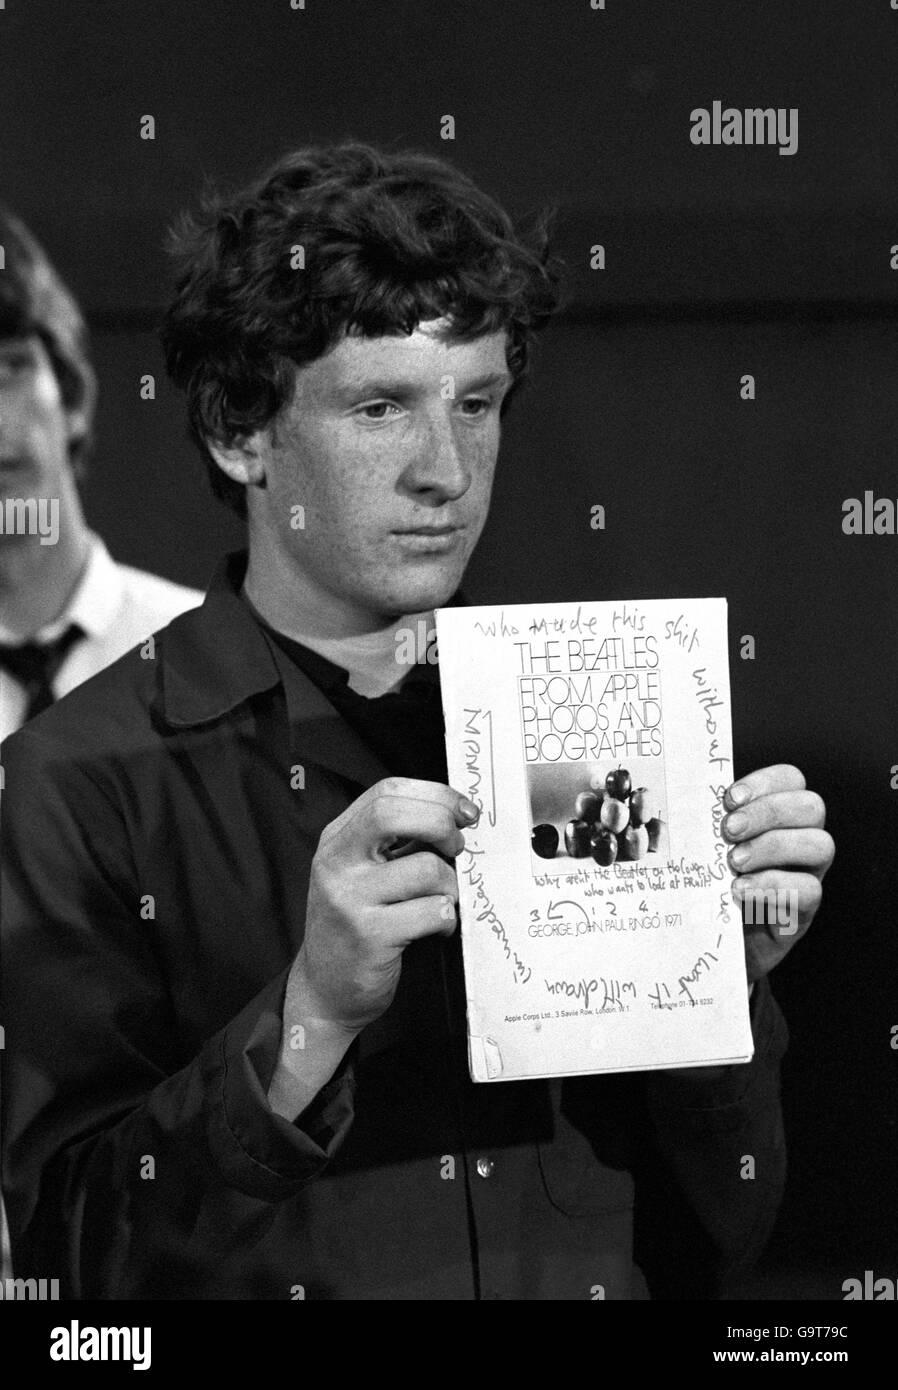 who made this
shit
without showing me
- I want it
withdrawn
immediately
THE BEATLES
FROM APPLE
PHOTOS AND
BIOGRAPHIES
Why aren't the Beatles on the cover,
who wants to look at FRUIT
3 1 2 4
GEORGE, JOHN, PAUL, RINGO 1971
Apple Corps Ltd., 3 Savile Row, London. W.1. Telephone 01-734 8232
a
alamy
alamy stock photo
G9T79C
www.alamy.com